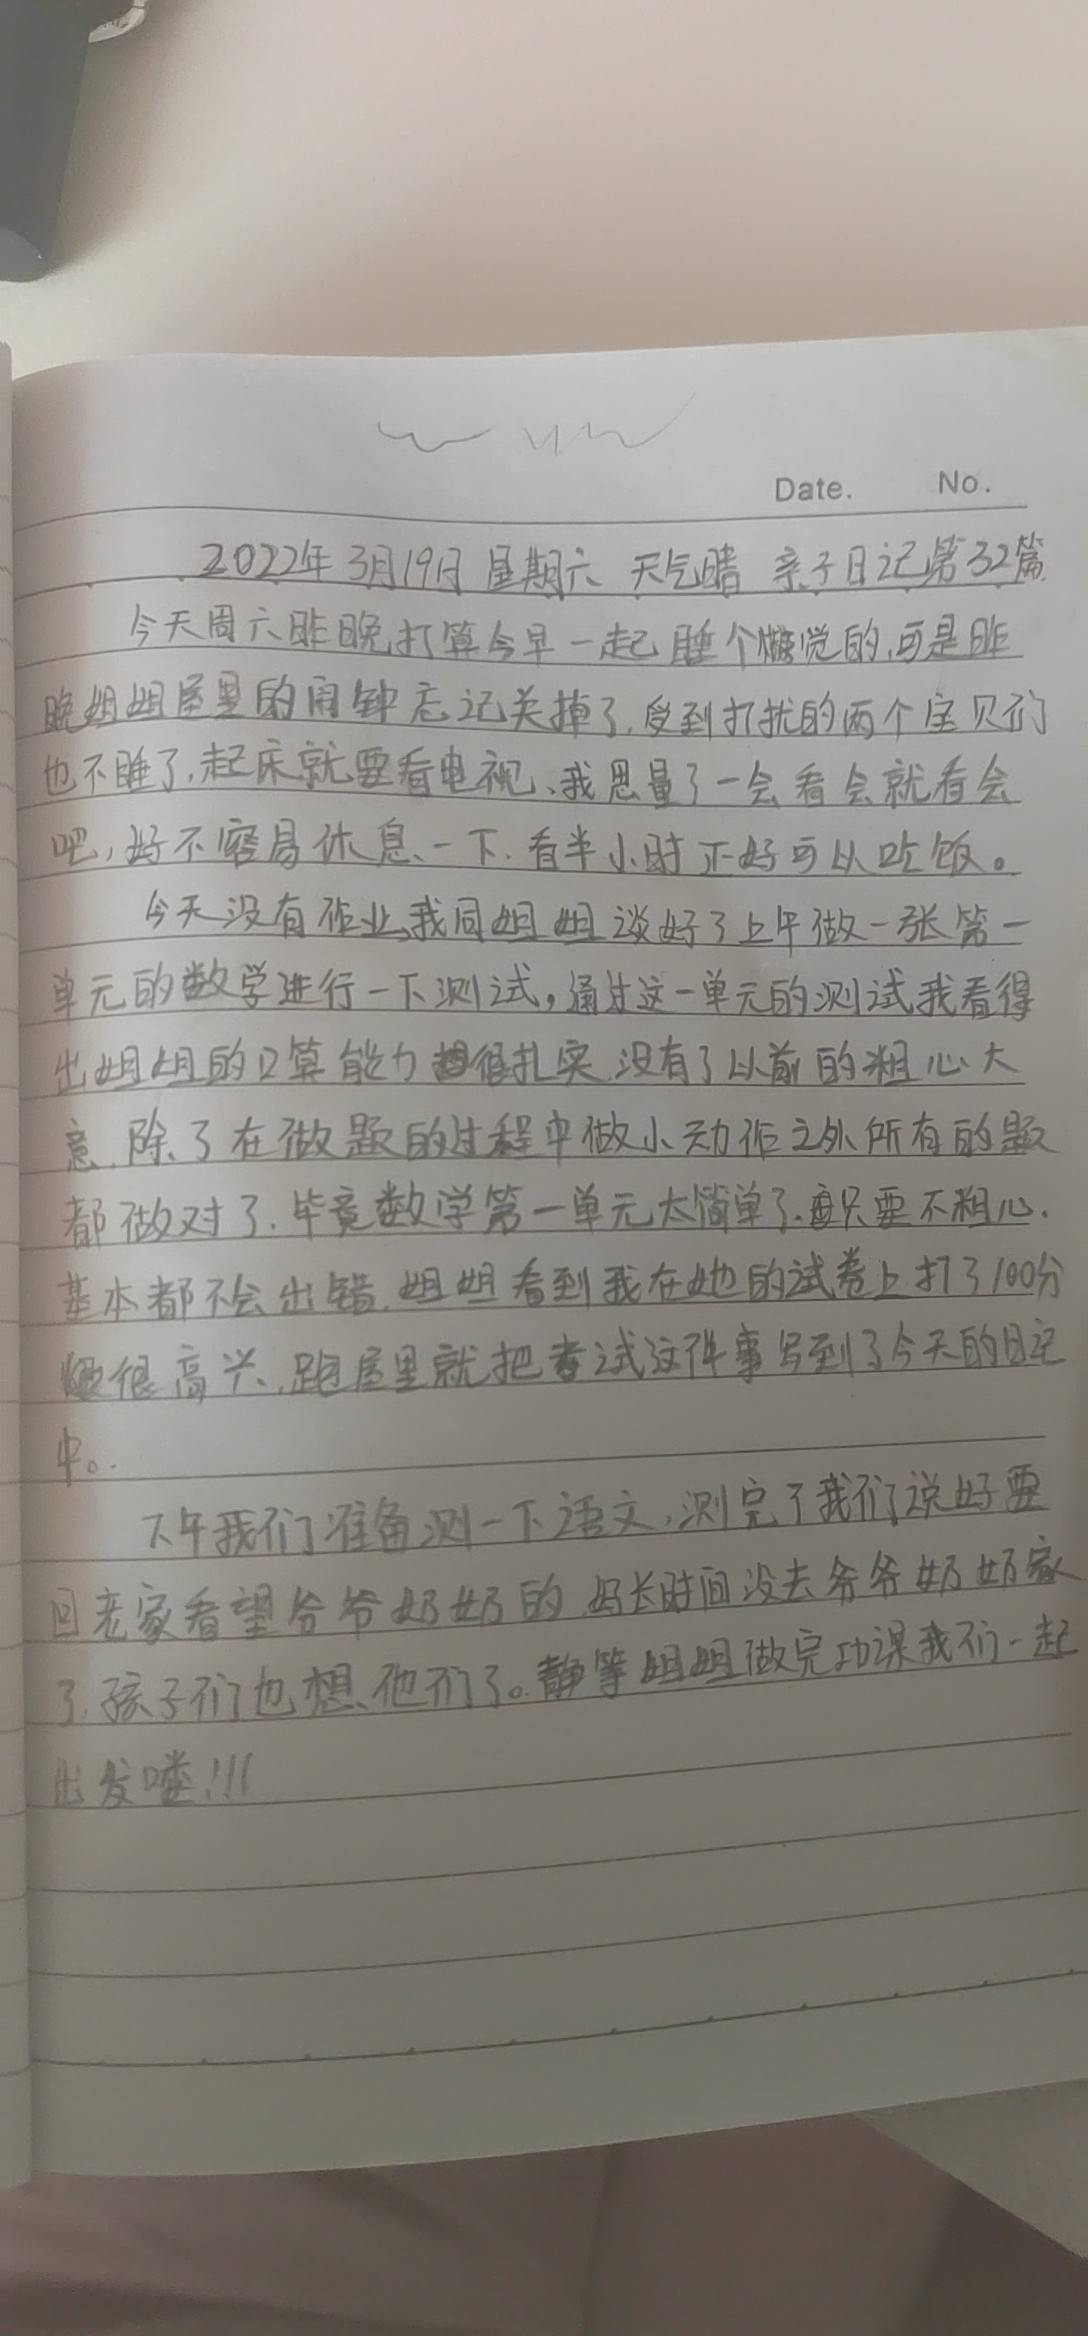 Date. No.
2022年3月19日 星期六 天气晴 亲子日记第32篇
今天周六昨晚打算今早一起睡个懒觉的,可是昨
晚姐姐屋里的闹钟忘记关掉了,受到打扰的两个宝贝们
也不睡了,起床就要看电视、我思量了一会看会就看会
吧,好不容易休息一下,看半小时正好可以吃饭。
今天没有作业,我同姐姐谈好了上午做一张第一
单元的数学进行一下测试,通过这一单元的测试我看得
出姐姐的口算能力很扎实,没有了以前的粗心大
意,除了在做题的过程中做小动作之外所有的题
都做对了,毕竟数学第一单元太简单了,只要不粗心,
基本都不会出错,姐姐看到我在她的试卷上打了100分
很高兴,跑屋里就把考试这件事写到了今天的日记
中。
下午我们准备测一下语文,测完了我们说好要
回老家看望爷爷奶奶的,好长时间没去爷爷奶奶家
了,孩子们也想他们了。静等姐姐做完功课我们一起
出发喽!!!